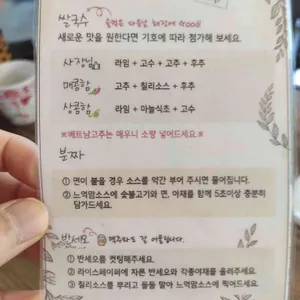 쌀국수 술먹은 다음날 해장에 Good!
새로운 맛을 원한다면 기호에 따라 첨가해 보세요.
사장님 라임 + 고수 + 고추 + 후추
매콤함 고추 + 칠리소스 + 후추
상큼함 라임 + 마늘식초 + 고수
※베트남고추는 매우니 소량 넣어드세요※
분짜
① 면이 불을 경우 소스를 약간 부어 주시면 풀어집니다.
② 느억맘소스에 숯불고기와 면, 야채를 함께 5초이상 충분히
담가드세요.
반세오 맥주와도 잘 어울립니다.
① 반세오를 컷팅해주세요.
② 라이스페이퍼에 자른 반세오와 각종야채를 올려주세요.
③ 칠리소스를 뿌리고 돌돌 말아 느억맘소스에 찍어드세요.